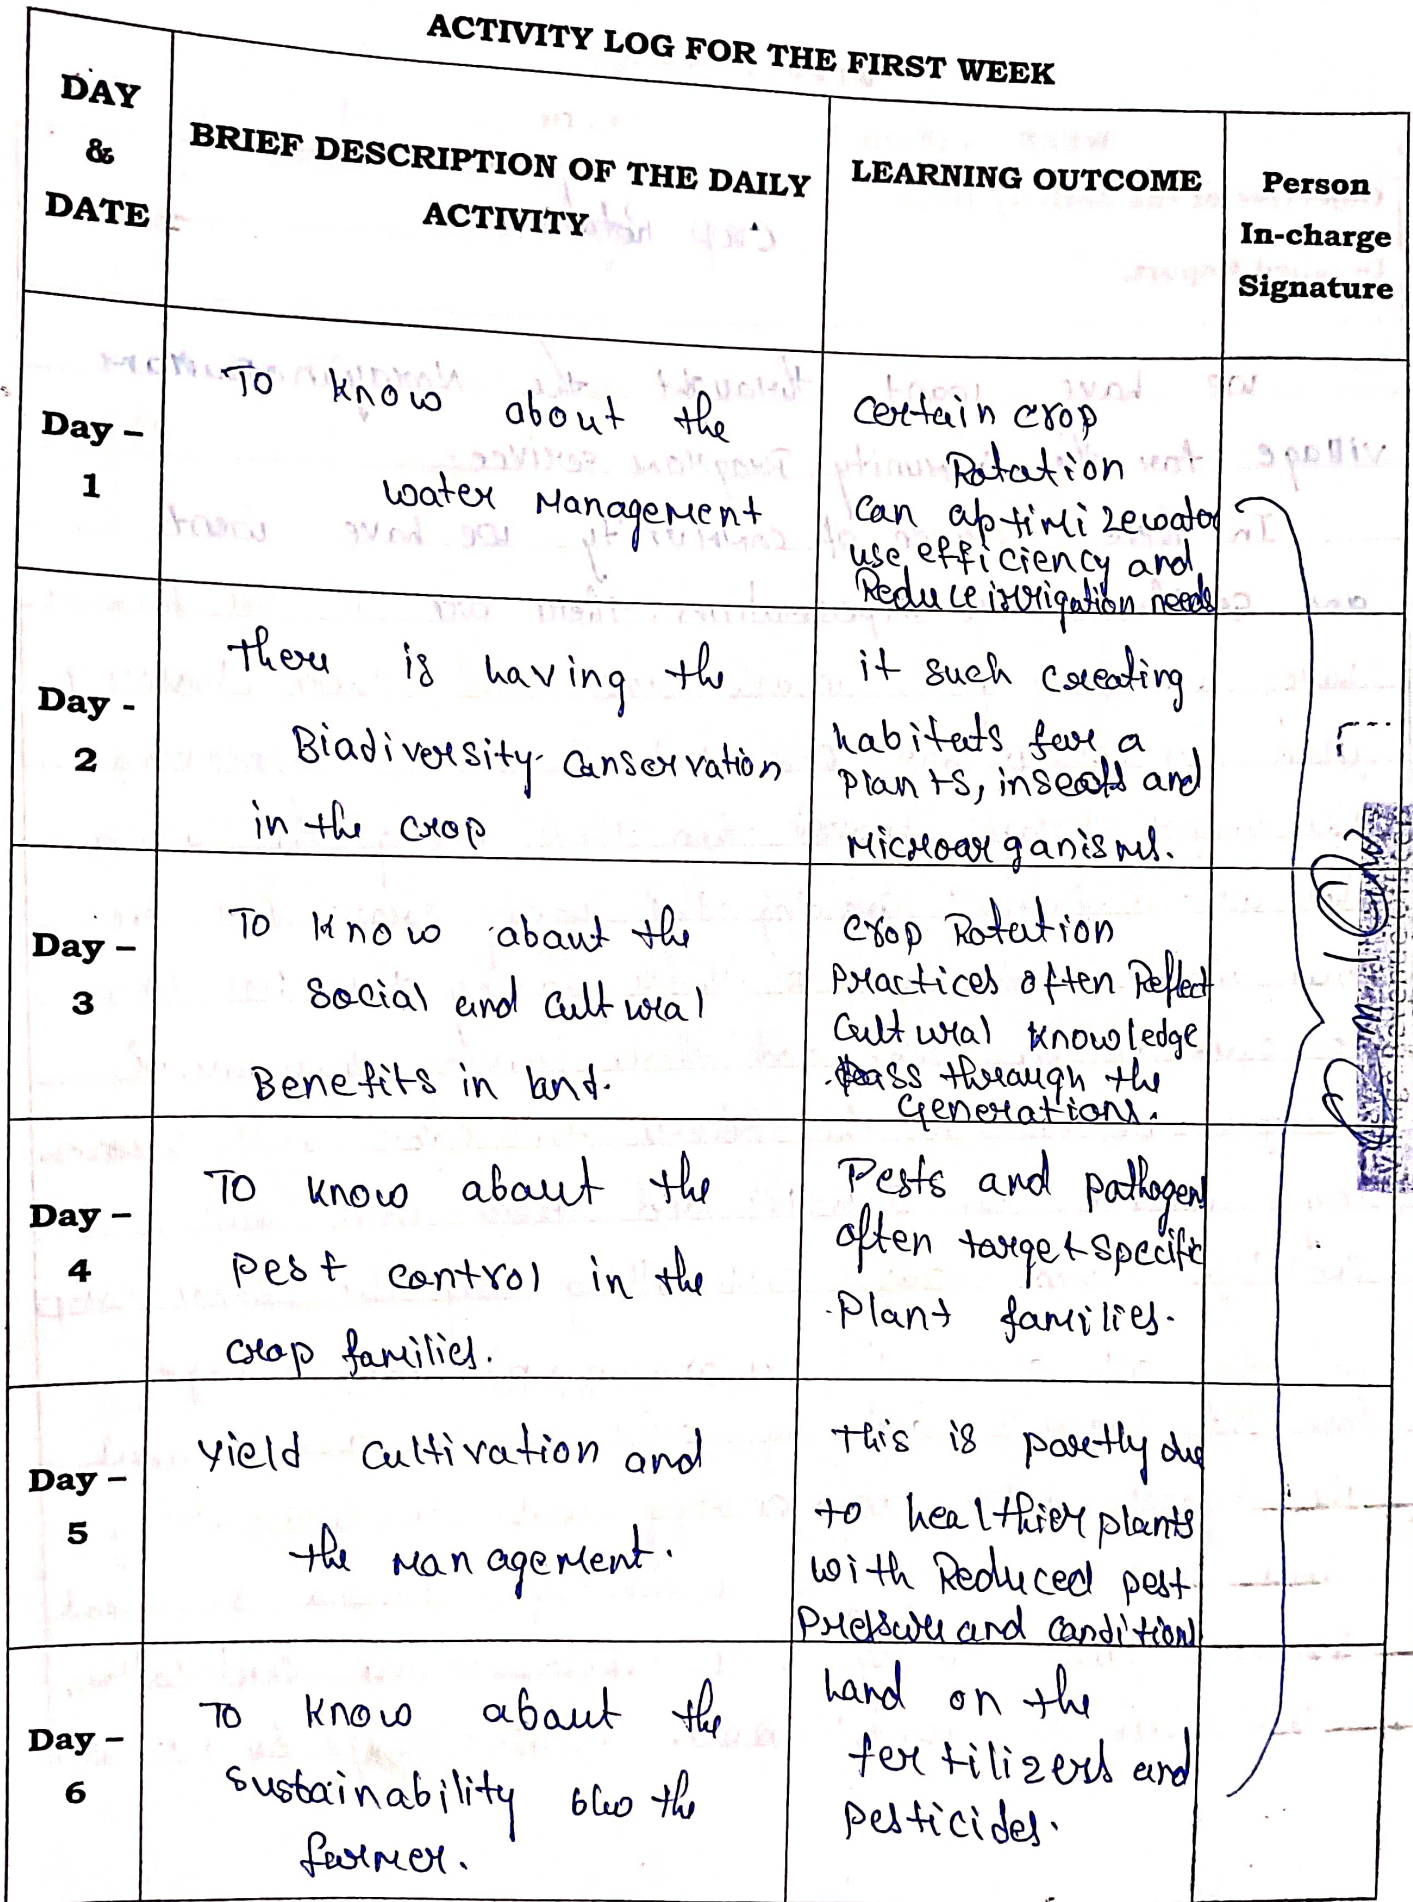 ACTIVITY LOG FOR THE FIRST WEEK
DAY
&
DATE
BRIEF DESCRIPTION OF THE DAILY
ACTIVITY
LEARNING OUTCOME
Person
In-charge
Signature
Day –
1
To know about the
water Management
certain crop
Rotation
can optimize water
use efficiency and
Reduce irrigation needs
Day -
2
there is having the
Biodiversity conservation
in the crop
it such creating
habitats for a
plants, insects and
Microorganisms.
Day –
3
To know about the
social and cultural
Benefits in land.
crop Rotation
practices often Reflect
cultural knowledge
pass through the
Generations.
Day –
4
To know about the
pest control in the
crop families.
Pests and pathogens
often target specific
Plant families.
Day –
5
yield cultivation and
the management.
This is partly due
to healthier plants
with Reduced pest
pressure and condition
Day –
6
To know about the
sustainability blw the
farmer.
hand on the
fertilizers and
pesticides.